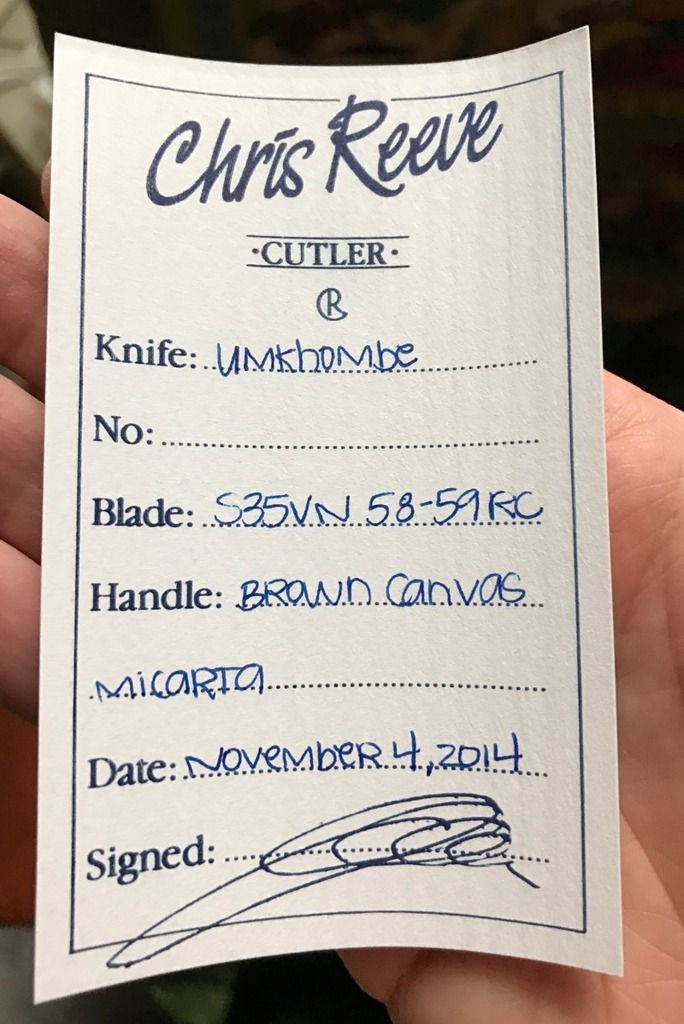 Chris Reeve
·CUTLER·
CR
Knife: UMKhOMbe
No:
Blade: S35VN 58-59 RC
Handle: BROWN CanVas
MICARTA
Date: NOVEMbER 4, 2014
Signed: